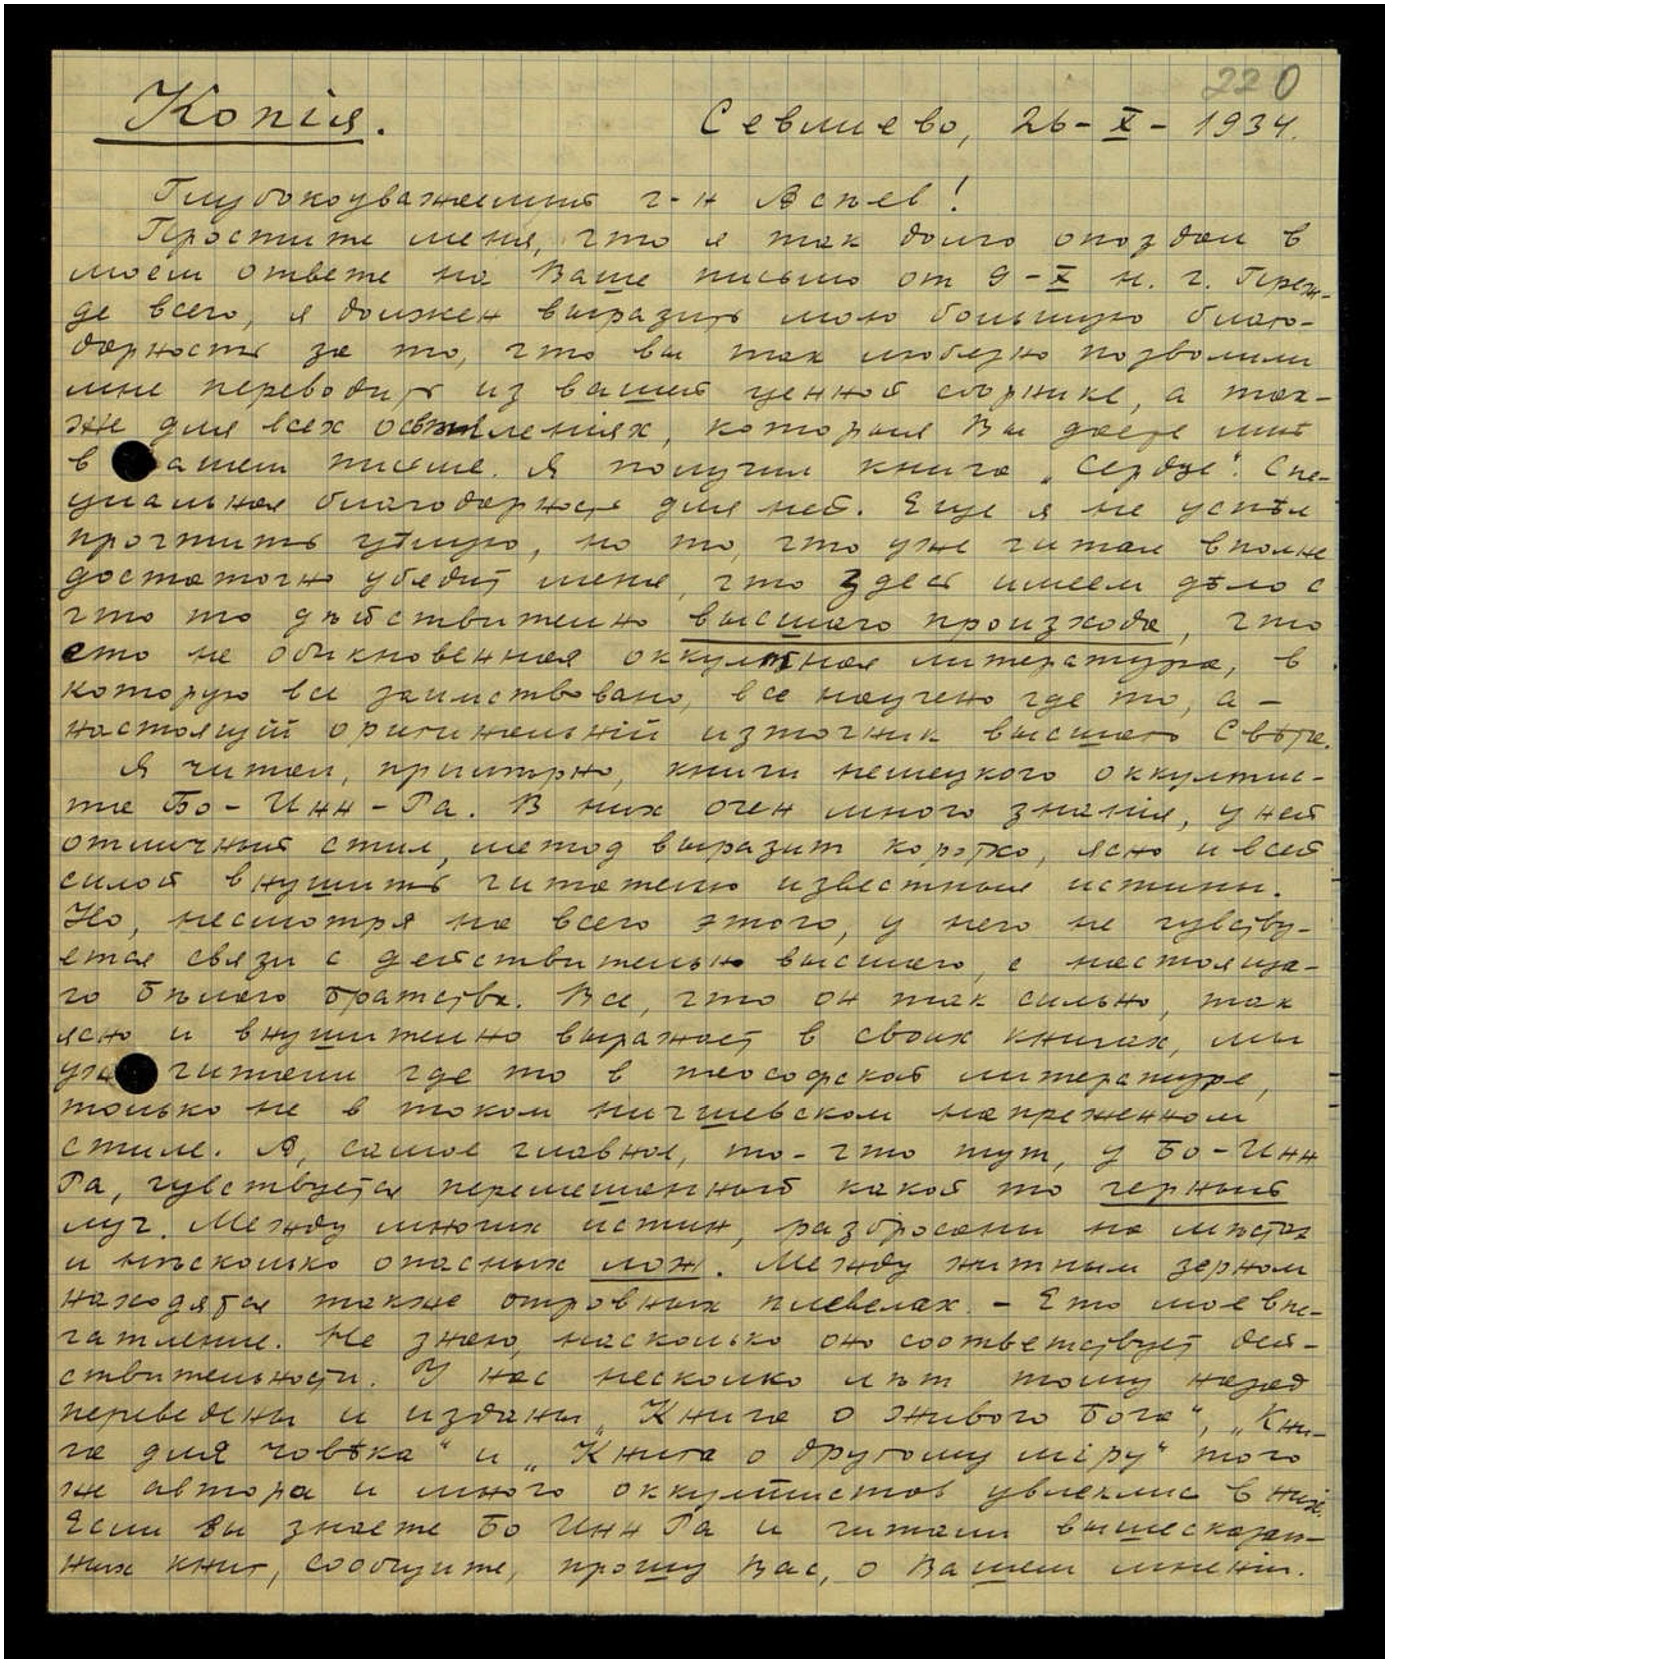 220
Копія. Севлиево, 26-X-1934.
Глубокоуважемый г-н Асѣев!
Простите меня, что я так долго опоздал в
моем ответе на Ваше письмо от 9-X н. г. Преж-
де всего, я должен выразить мою большую благо-
дарность за то, что вы так любезно позволили
мне переводить из вашей ценной сборнике, а так-
же для всех осветленіях, которыя Вы даете мнѣ
в вашем писме. Я получил книга „Сердце". Спе-
циальная благодарность для ней. Еще я не успѣл
прочтить цѣлую, но то, что уже читал вполне
достаточно убедит меня, что здесь имеем дѣло с
что то дѣйствительно высшаго произхода, что
ето не обикновенная оккультная литература, в
которую все заимствовано, все научено где то, а -
настоящій оригинальній източник высшаго Свѣта.
Я читал, примѣрно, книги немецкого оккултис-
та Бо-Инн-Ра. В них очен много знанія, у ней
отличный стил, метод выразит коротко, ясно и всей
силой внушить читателю известные истины.
Но, несмотря на всего этого, у него не чувству-
ется связи с действительно высшаго, с настояща-
го бѣлаго братства. Все, что он так сильно, так
ясно и внушително выражает в своих книгах, мы
уже читали где то в теософской литературе,
только не в таком ничшевском напреженном
стиле. А, самое главное, то-что тут, у Бо-Инн
Ра, чувствуется перемешанный какой то черный
луч. Между многих истин, разбросаны на мѣстах
и нѣсколько опасных лож. Между житным зерном
находятся также отровных плевелах. - Ето мое впе-
чатление. Не знаю, насколько оно соответствует дей-
ствительности. У нас несколко лѣт тому назад
переведены и изданы „Книга о живого Бога", „Кни-
га для човѣка" и „Книга о другому міру" того
же автора и много оккултистов увлеклис в них.
Если вы знаете Бо Инн Ра и читали вышесказан-
ных книг, сообщите, прошу Вас, о Вашем мненіи.